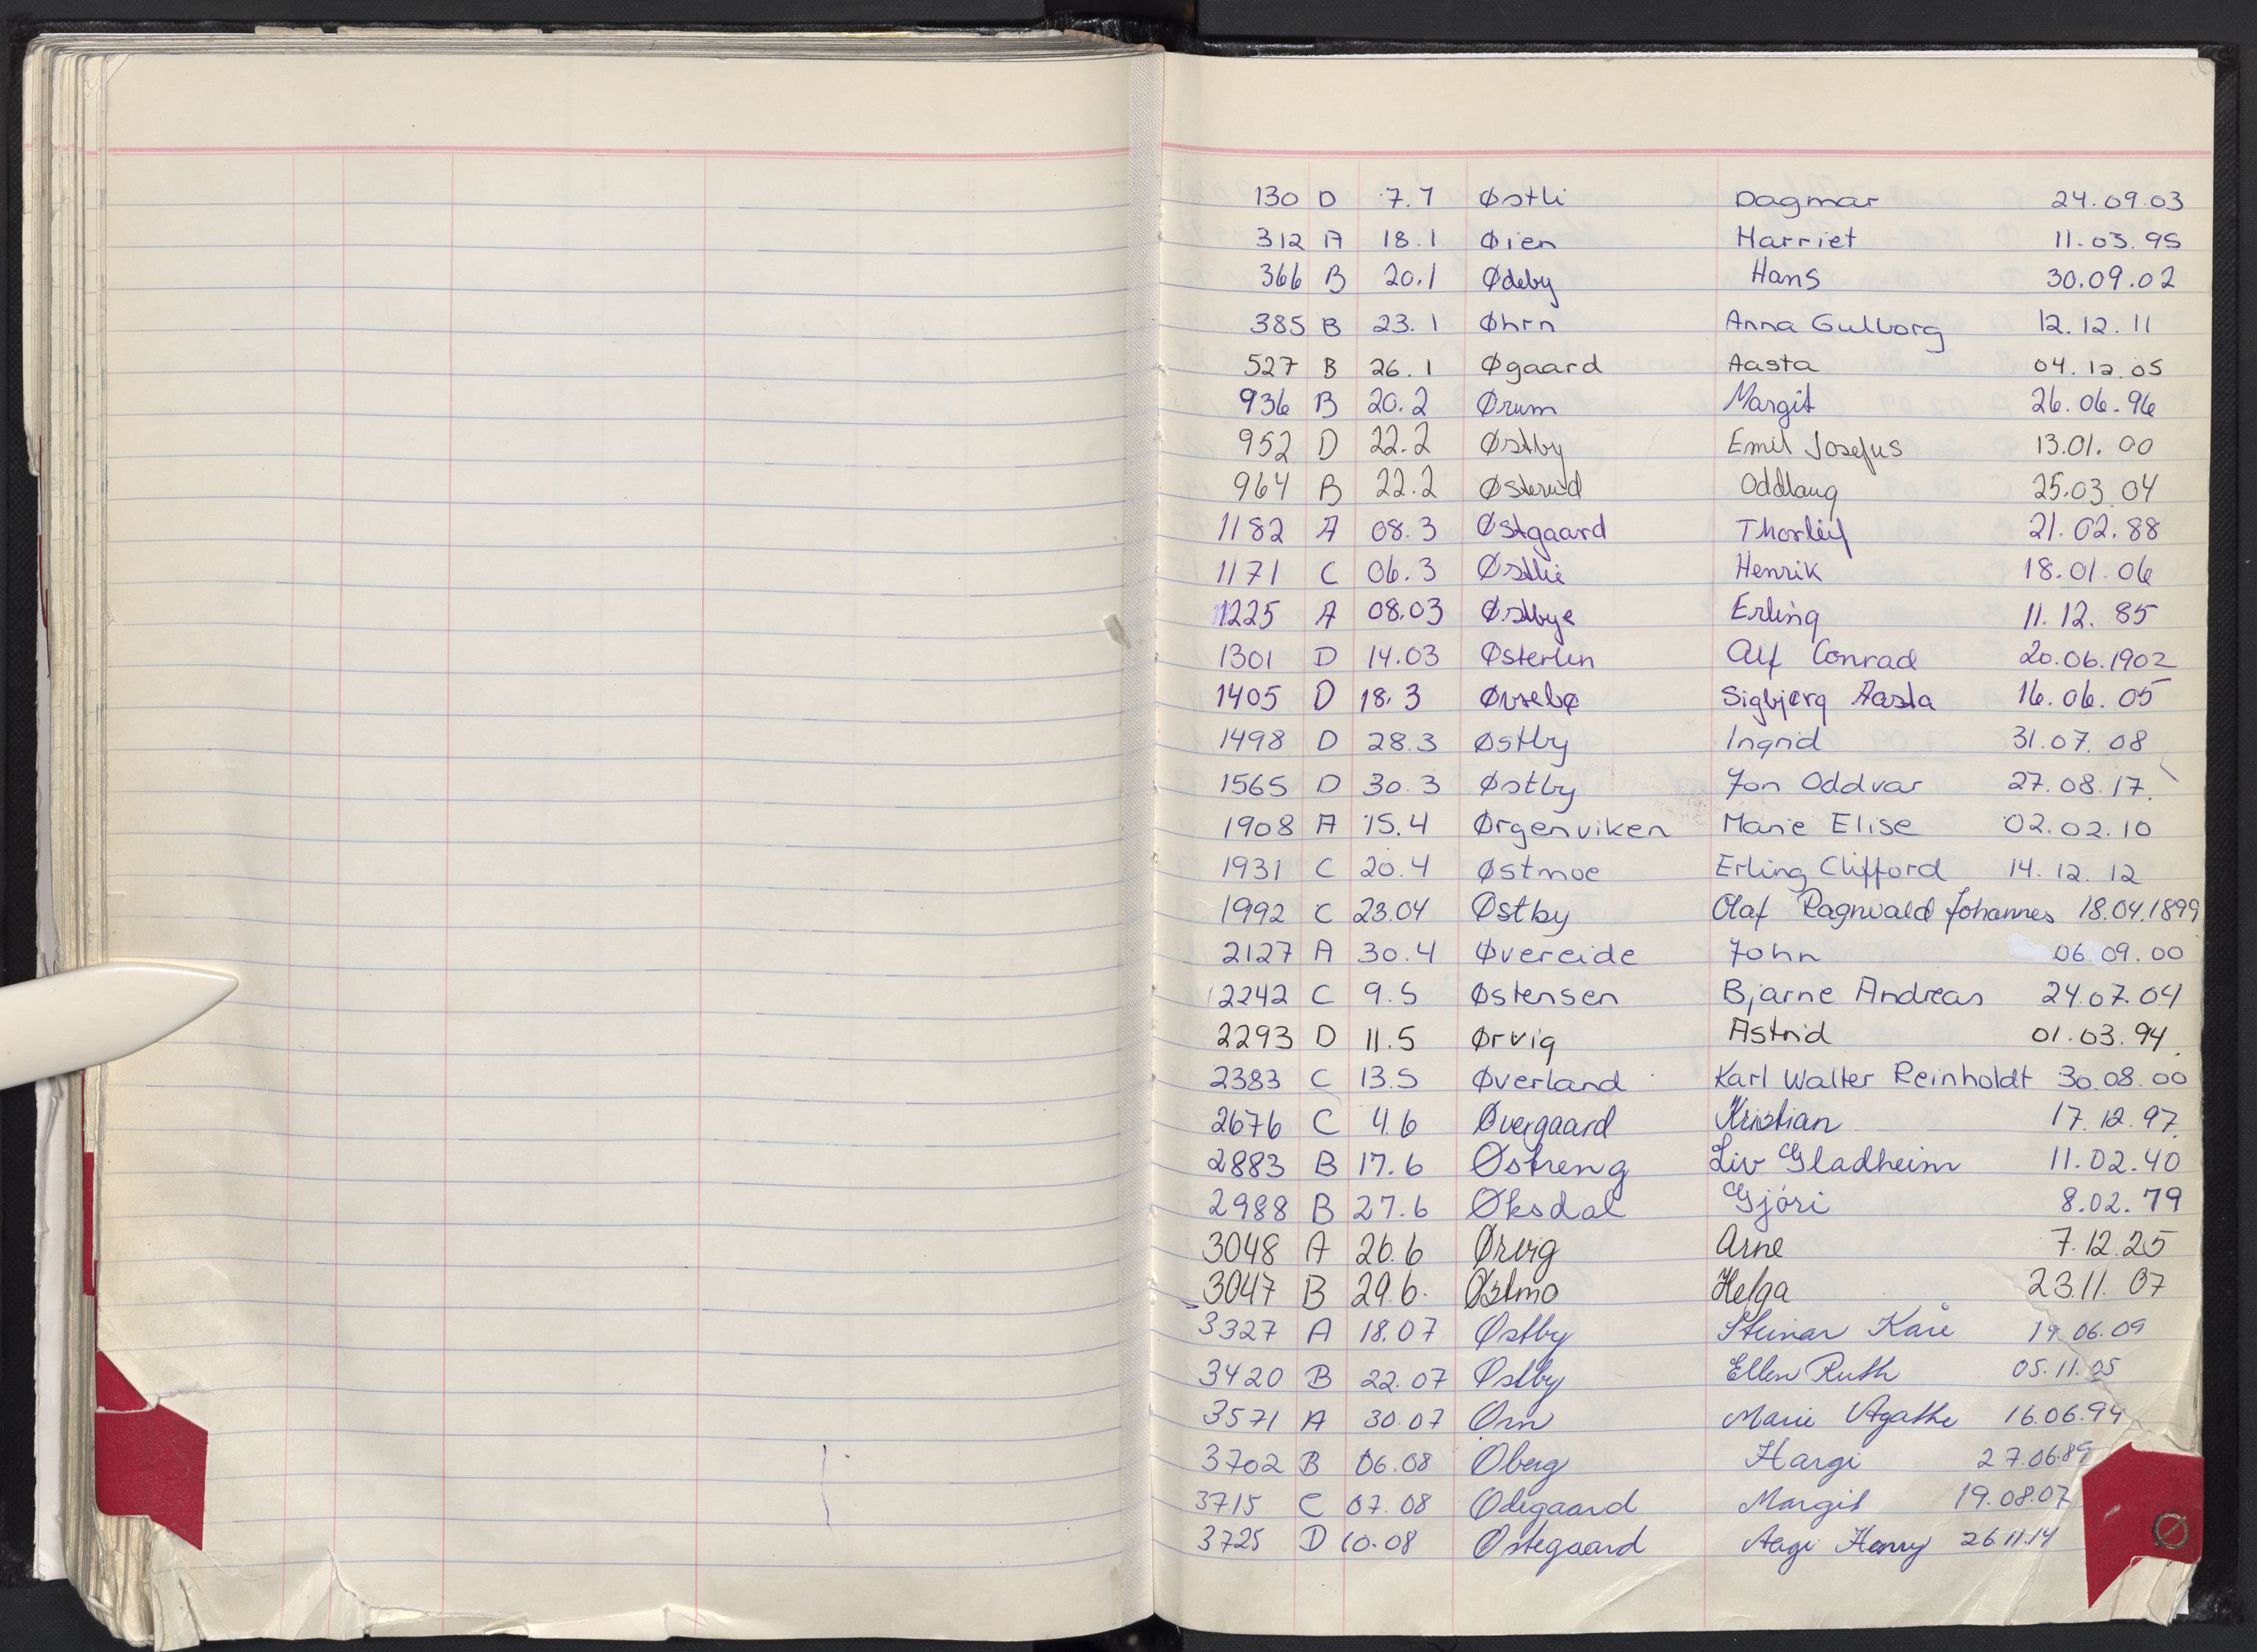 130 D 7.1 Østli Dagmar 24.09.03
312 A 18.1 Øien Harriet 11.03.95
366 B 20.1 Ødeby Hans 30.09.02
385 B 23.1 Øhrn Anna Gulborg 12.12.11
527 B 26.1 Øgaard Aasta 04.12.05
936 B 20.2 Ørum Margit 26.06.96
952 D 22.2 Østby Emil Josefus 13.01.00
964 B 22.2 Østerud Oddlaug 25.03.04
1182 A 08.3 Østgaard Thorleif 21.02.88
1171 C 06.3 Østlie Henrik 18.01.06
1225 A 08.03 Østbye Erling 11.12.85
1301 D 14.03 Østerlin Alf Conrad 20.06.1902
1405 D 18.3 Øvsebø Sigbjørg Aasta 16.06.05
1498 D 28.3 Østby Ingrid 31.07.08
1565 D 30.3 Østby Jon Oddvar 27.08.17.
1908 A 15.4 Ørgenviken Marie Elise 02.02.10
1931 C 20.4 Østmoe Erling Clifford 14.12.12
1992 C 23.04 Østby Olaf Ragnvald Johannes 18.04.1899
2127 A 30.4 Øvereide John 06.09.00
2242 C 9.5 Østensen Bjarne Andreas 24.07.04
2293 D 11.5 Ørvig Astrid 01.03.94.
2383 C 13.5 Øverland Karl Walter Reinholdt 30.08.00
2676 C 4.6 Øvergaard Kristian 17.12.97.
2883 B 17.6 Østreng Liv Gladheim 11.02.40
2988 B 27.6 Øksdal Gjöri 8.02.79
3048 A 26.6 Ørvig Arne 7.12.25
3047 B 29.6. Østmo Helga 23.11.07
3327 A 18.07 Østby Steinar Kåre 19.06.09
3420 B 22.07 Østby Ellen Ruth 05.11.05
3571 A 30.07 Ørn Marie Agathe 16.06.94
3702 B 06.08 Øberg Hargi 27.06.89
3715 C 07.08 Ødegaard Margit 19.08.07
3725 D 10.08 Østegaard Aage Henry 26.11.14
Ø